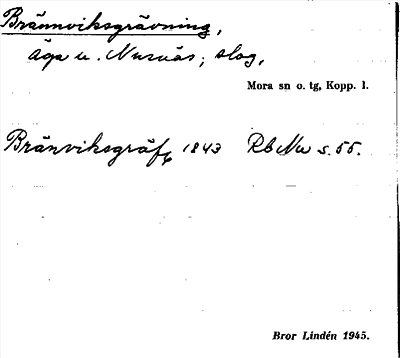 Brännviksgrävning,
äga u. Nusnäs; slog,
Mora sn o. tg, Kopp. l.
Bränviksgräf 1843 Rb Nu s. 55.
Bror Lindén 1945.